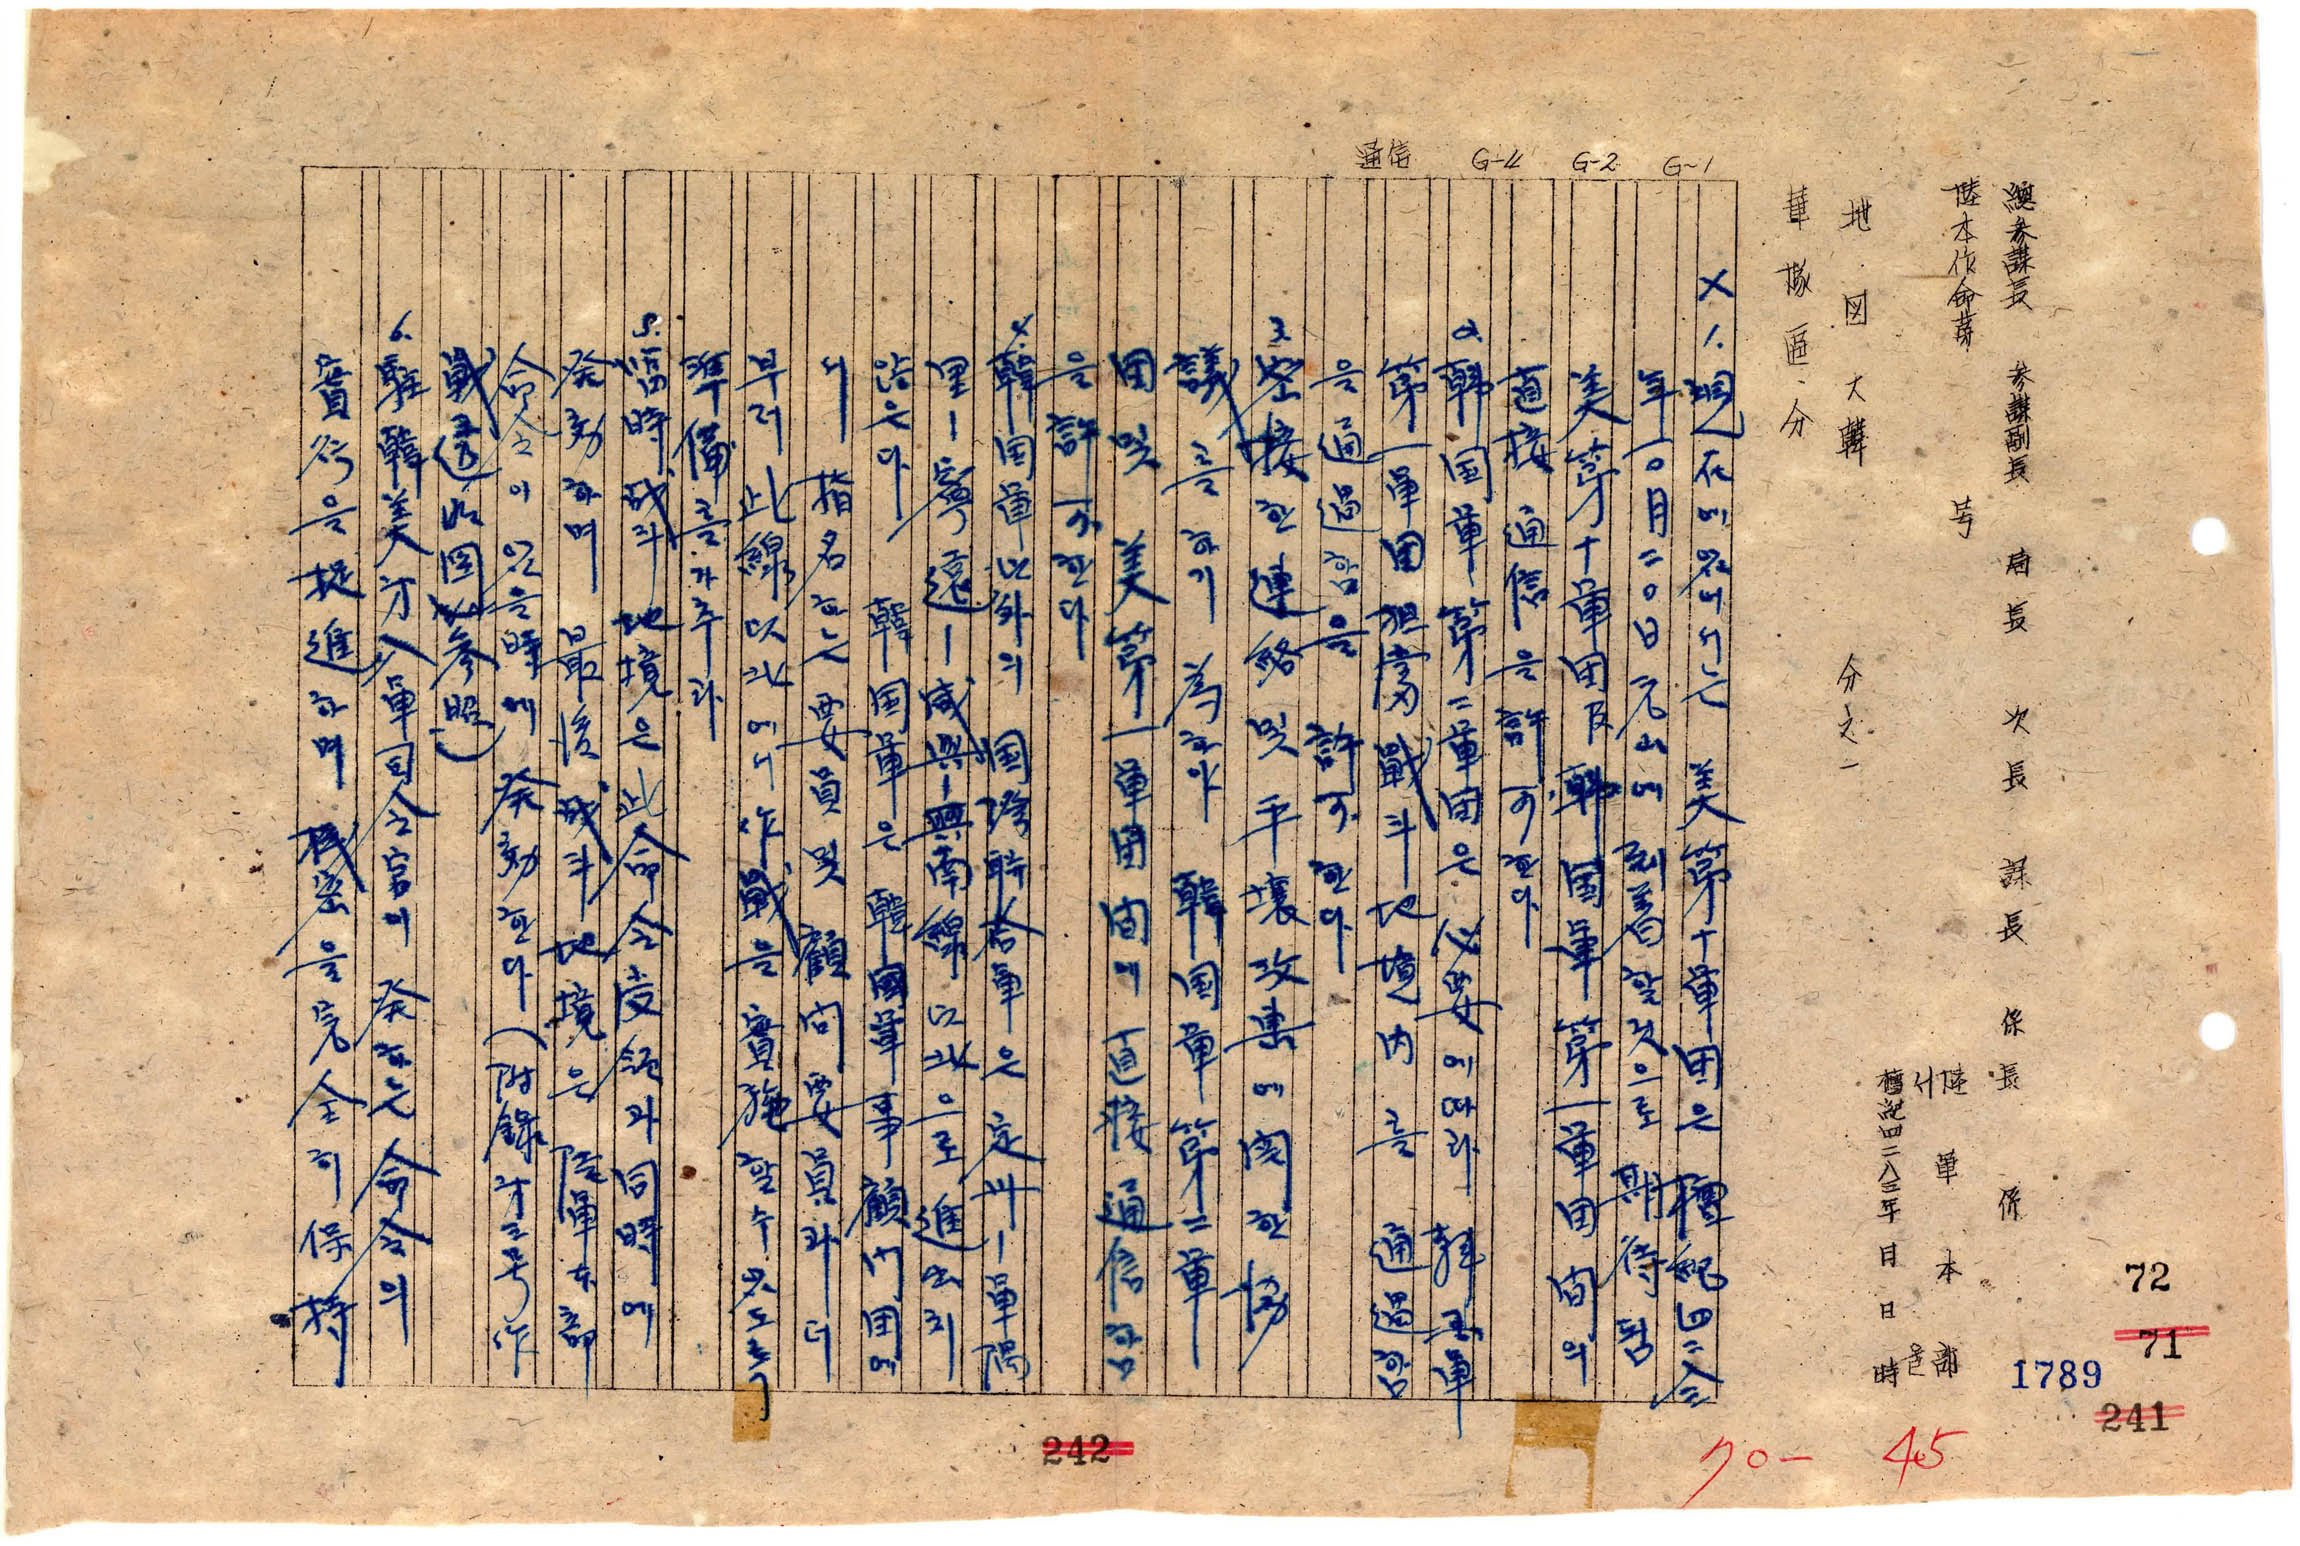 總參謀長 參謀副長 局長 次長 課長 係長 係
陸本作命第 号
陸軍本部
서울
檀紀四二八三年 月 日 時
地図 大韓 分之一
軍隊區分
G-1
G-2
G-4
通信
X 1. 現在에 있어서는 美第十軍団은 檀紀四二八三
年一○月二○日 元山에 到着할 것으로 期待됨
美第十軍団及 韓国軍第一軍団 间의
直接通信을 許可한다
2. 韓国軍第二軍団은 必要에 따라
第一軍団 担當 戰斗地境内를 通過함
을 通過함을 許可한다
3. 密接한 連絡 및 平壤攻擊에 関한 協
議를 하기 爲하야 韓国軍第二軍
団 및 美第一軍団间에 直接通信함
을 許可한다
4. 韓国軍以外의 国際聯合軍은 定州ー軍隅
里ー寧遠ー咸興ー興南線 以北으로 進出치
않은다 韓国軍은 韓國軍事顧问団에
서 指名하는 要員 및 顧问要員과 더
부러 此線以北에서 作戰을 實施할 수 있도록
準備를 가추라
5. 臨時战斗地境은 此命令受領과 同時에
発効하며 最後战斗地境은 陸軍本部
命令이 있을 時에 発効한다 (附錄才三号 作
戰透明図 参照)
6. 駐韓美才八軍司令官이 発하는 命令의
實行을 捉進하며 機密을 完全히 保持
72
71
1789
241
242
70- 45